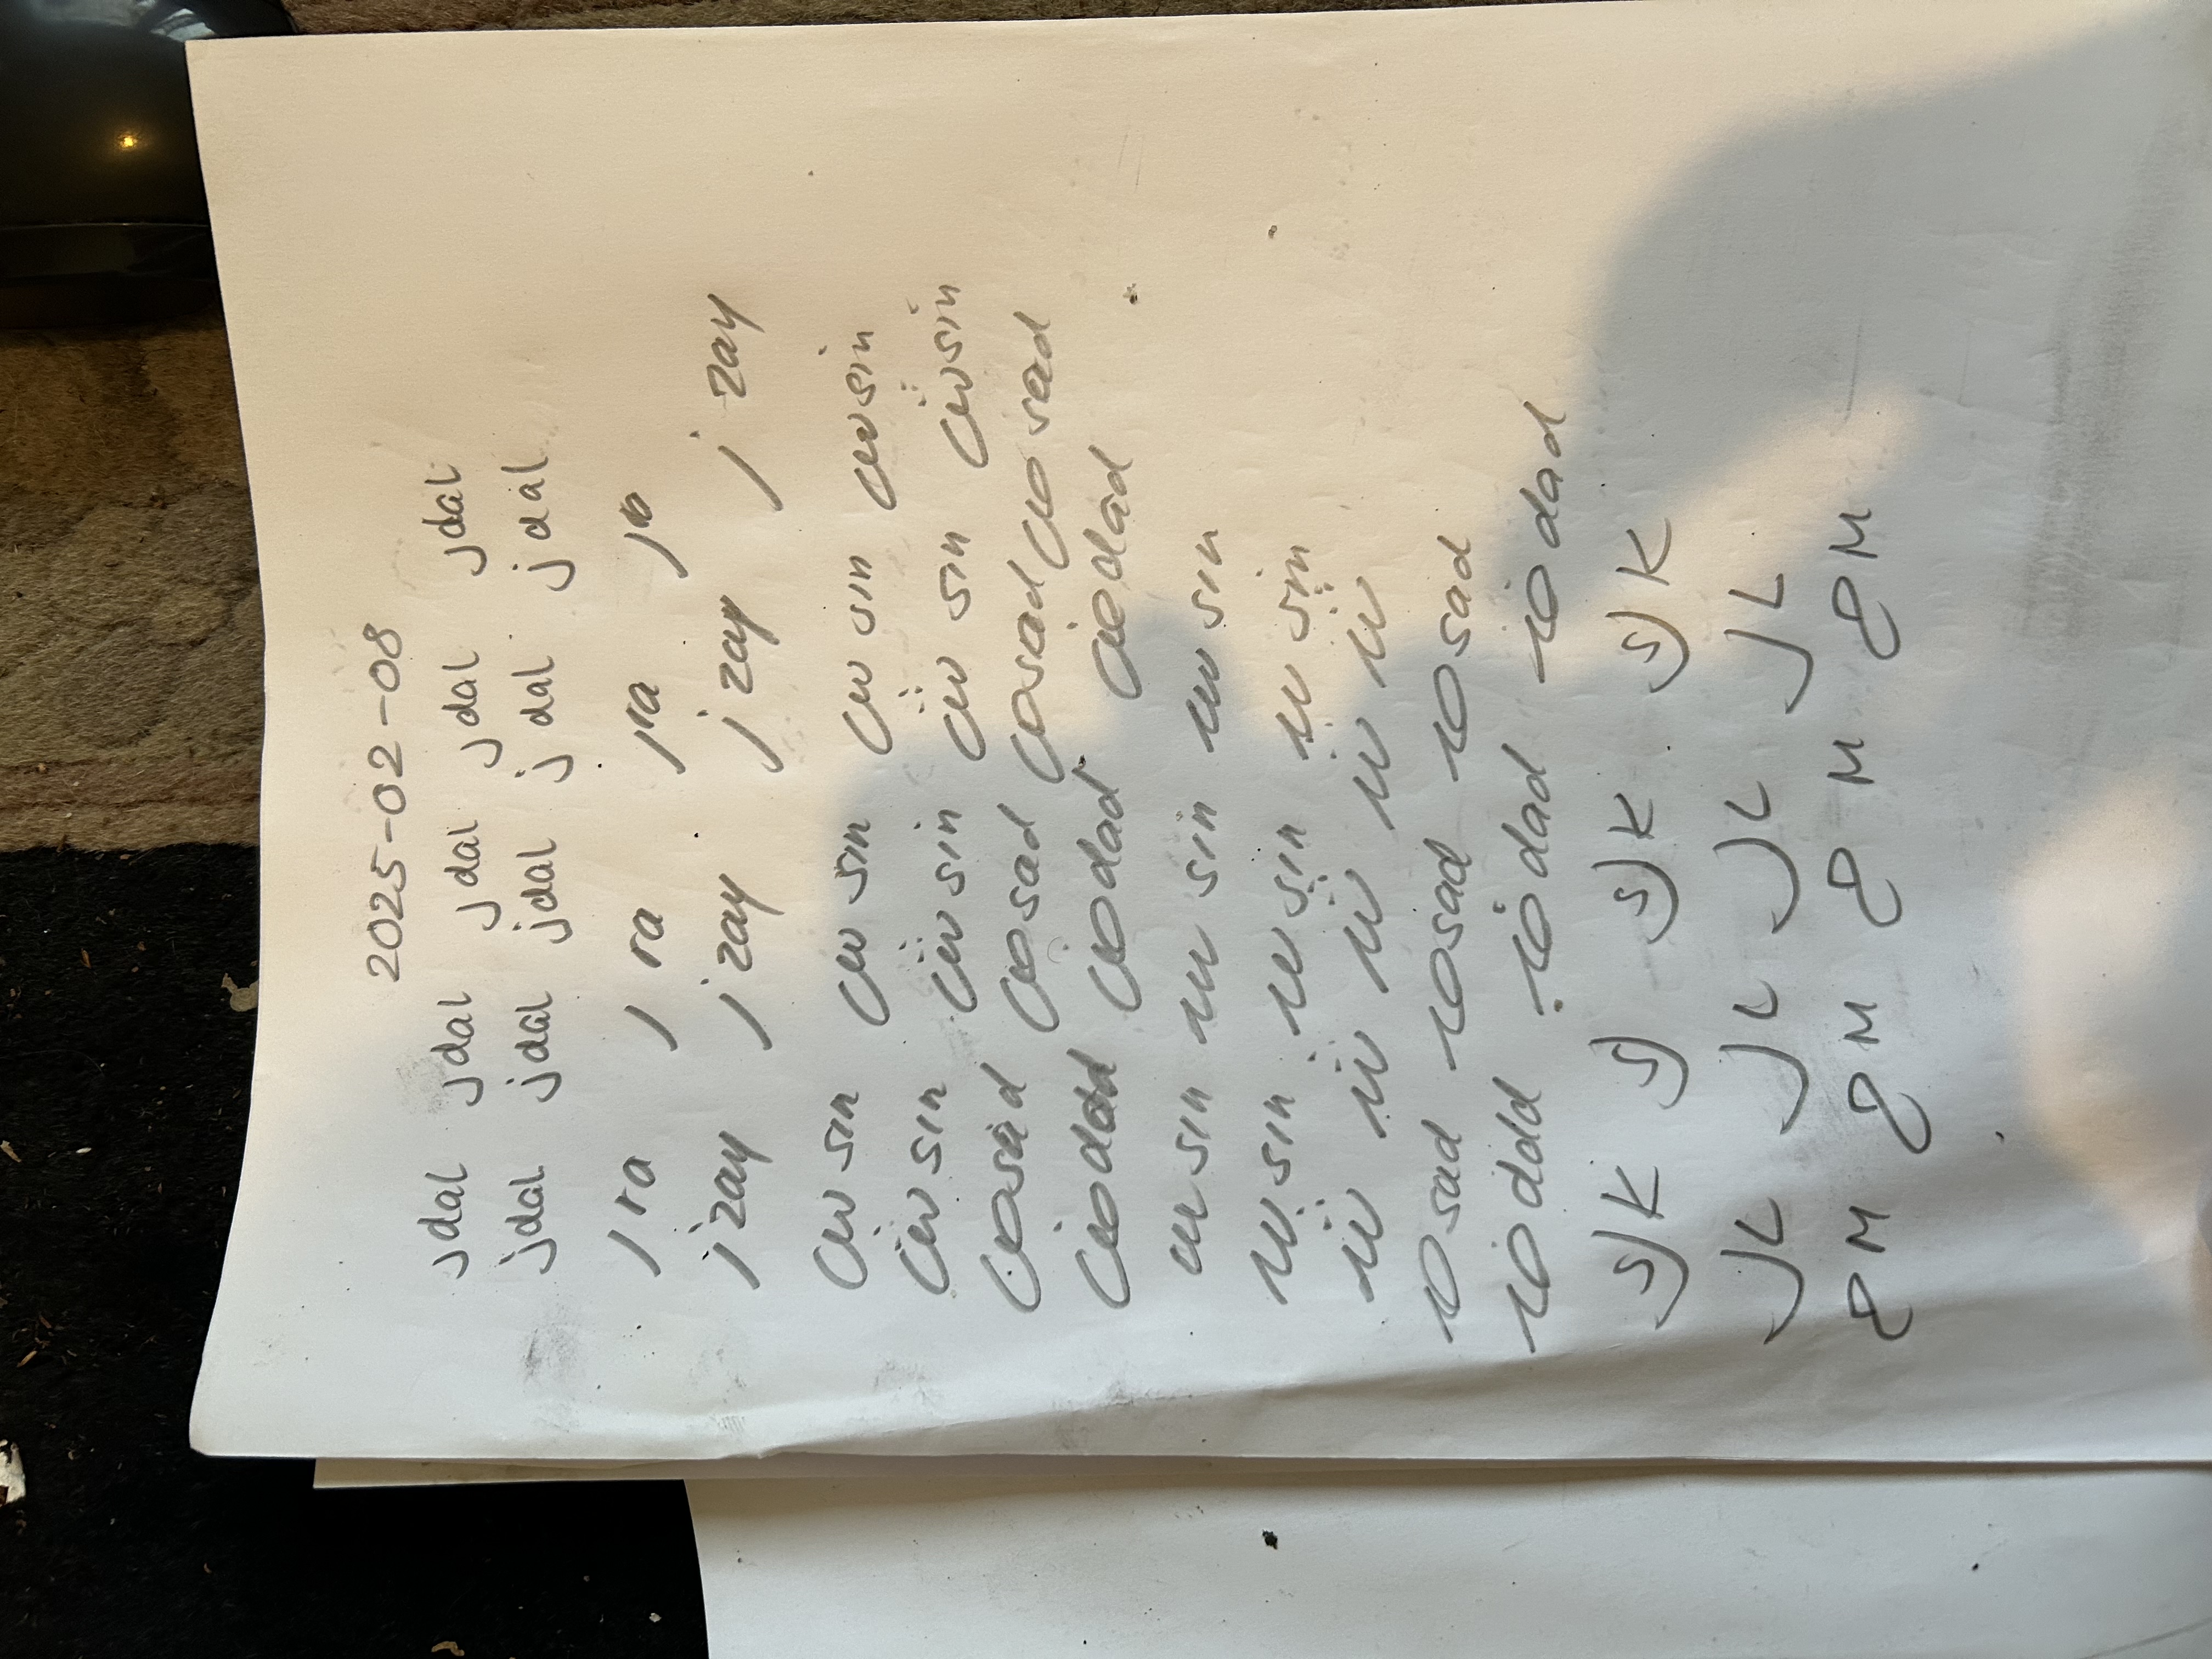 2025-02-08
د dal د dal د dal د dal د dal
ذ dal ذ dal ذ dal ذ dal ذ dal
ر ra ر ra ر ra ر
ز zay ز zay ز zay ز zay
س sin س sin س sin س sin
ش sin ش sin ش sin ش sin
ص sad ص sad ص sad ص sad
ض dad ض dad ض dad
سـ sin سـ sin سـ sin
sin sin sin
شـ شـ شـ شـ شـ
صـ sad صـ sad صـ sad
ضـ dad ضـ dad ضـ dad
ك K ك ك K ك K
ل L ل L ل L ل L
م M م M م M م M